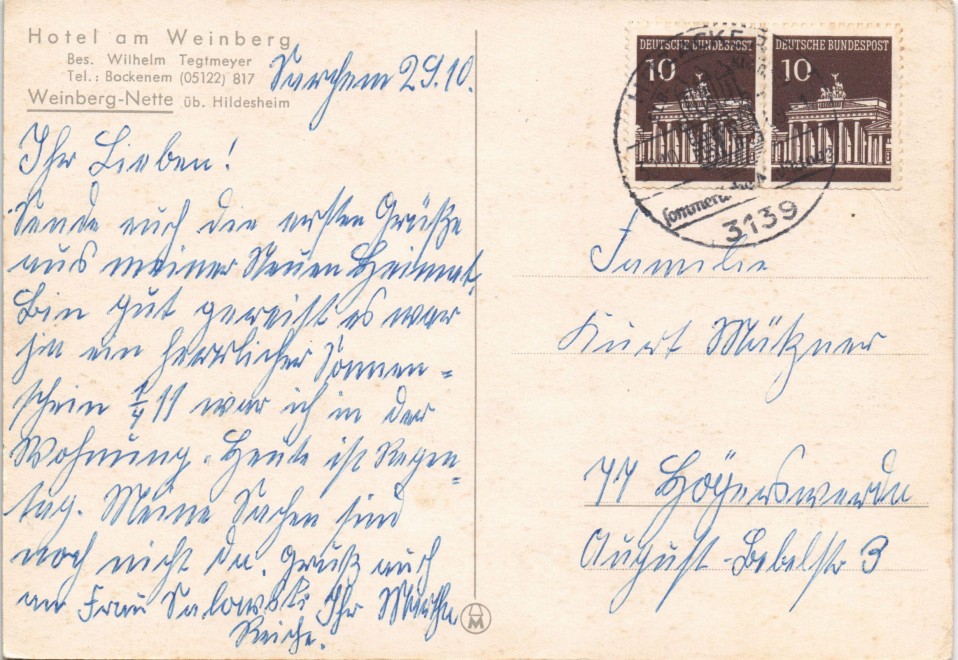 Hotel am Weinberg
Bes. Wilhelm Tegtmeyer
Tel.: Bockenem (05122) 817
Weinberg-Nette üb. Hildesheim
29.10.
Ihr Lieben!
Sende euch die ersten Grüße
aus meiner Neuen Heimat.
Bin gut gereist es war
ja ein herrlicher Sonnen=
schein ¼ 11 war ich in der
Wohnung. Heute ist Regen=
tag. Meine Sachen sind
noch nicht da. Gruß auch
an Frau Ihr Martha
Reiche.
DEUTSCHE BUNDESPOST
10
DEUTSCHE BUNDESPOST
10
3139
Familie
Kurt Mützner
77 Höyerswerda
August-Bebelstr 3